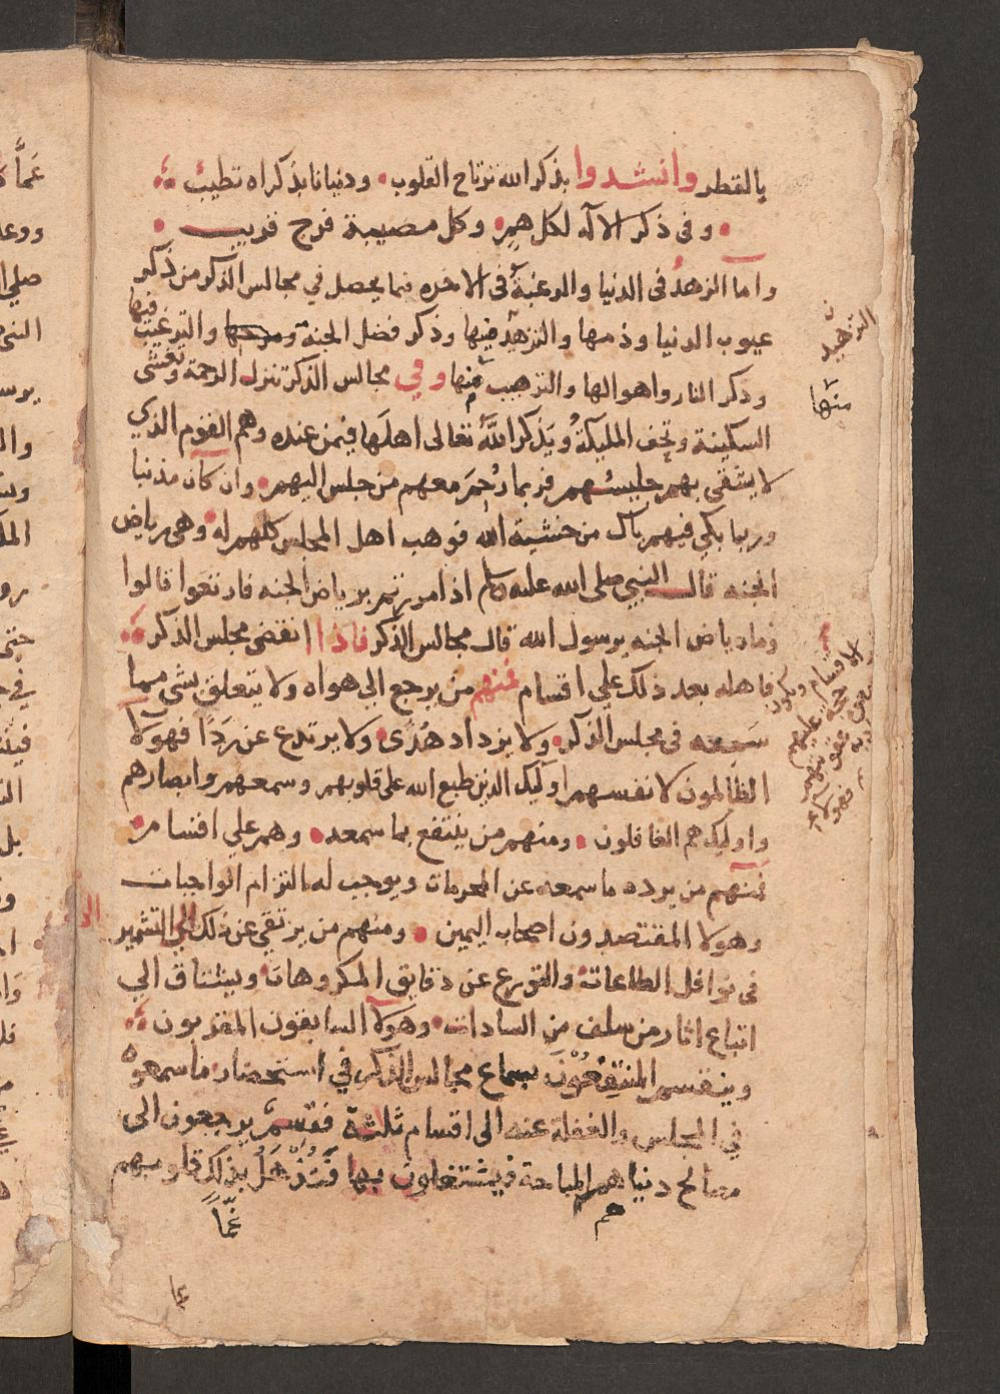 بالقطر وانشدوا بذكر الله ترتاح القلوب ودنيانا بذكراه تطيب
وفى ذكر الاله لكل هم وكل مصيبة فرج قريب
واما الزهد فى الدنيا والرغبة فى الاخره فما يحصل في مجالس الذكر من ذكر
عيوب الدنيا وذمها والتزهيد فيها وذكر فضل الجنة ومدحها والترغيب فيها
وذكر النار واهوالها والترهيب منها وفي مجالس الذكر تنزل الرحمة وتغشى
السكينة وتحف المليكة ويذكر الله تعالى اهلها فيمن عنده وهم القوم الذي
لا يشقى بهم جليسهم فربما رحم معهم من جلس اليهم وان كان مذنبا
وربما بكى فيهم باك من خشية الله فوهب اهل المجلس كلهم له وهى رياض
الجنه قال النبي صلى الله عليه وسلم اذا مررتم برياض الجنه فارتعوا قالوا
وما رياض الجنه يرسول الله قال مجالس الذكر فاذا انقضى مجلس الذكر
فاهله بعد ذلك علي اقسام فمنهم من يرجع الي هواه ولا يتعلق بشى مما
سمعه فى مجلس الذكر ولا يزداد هدى ولا يرتدع عن ردا فهولا
الظالمون لانفسهم اوليك الذين طبع الله على قلوبهم وسمعهم وابصارهم
واوليك هم الغافلون ومنهم من ينتفع بما سمعه وهم علي اقسام
فمنهم من يرده ما سمعه عن المحرمات ويوجب له التزام الواجبات
وهولا المقتصدون اصحاب اليمين ومنهم من يرتقى عن ذلك الي التشمير
فى نوافل الطاعات والتورع عن دقايق المكروهات ويشتاق الي
اتباع اثار من سلف من السادات وهولا السابقون المقربون
وينقسم المنتفعون بسماع مجالس الذكر في استحضار ما سمعوه
في المجلس والغفلة عنه الى اقسام ثلثة فقسم يرجعون الى
مصالح دنياهم المباحة فيشتغلون بها فتذهل بذلك قلوبهم
عما
التزهيد
منها